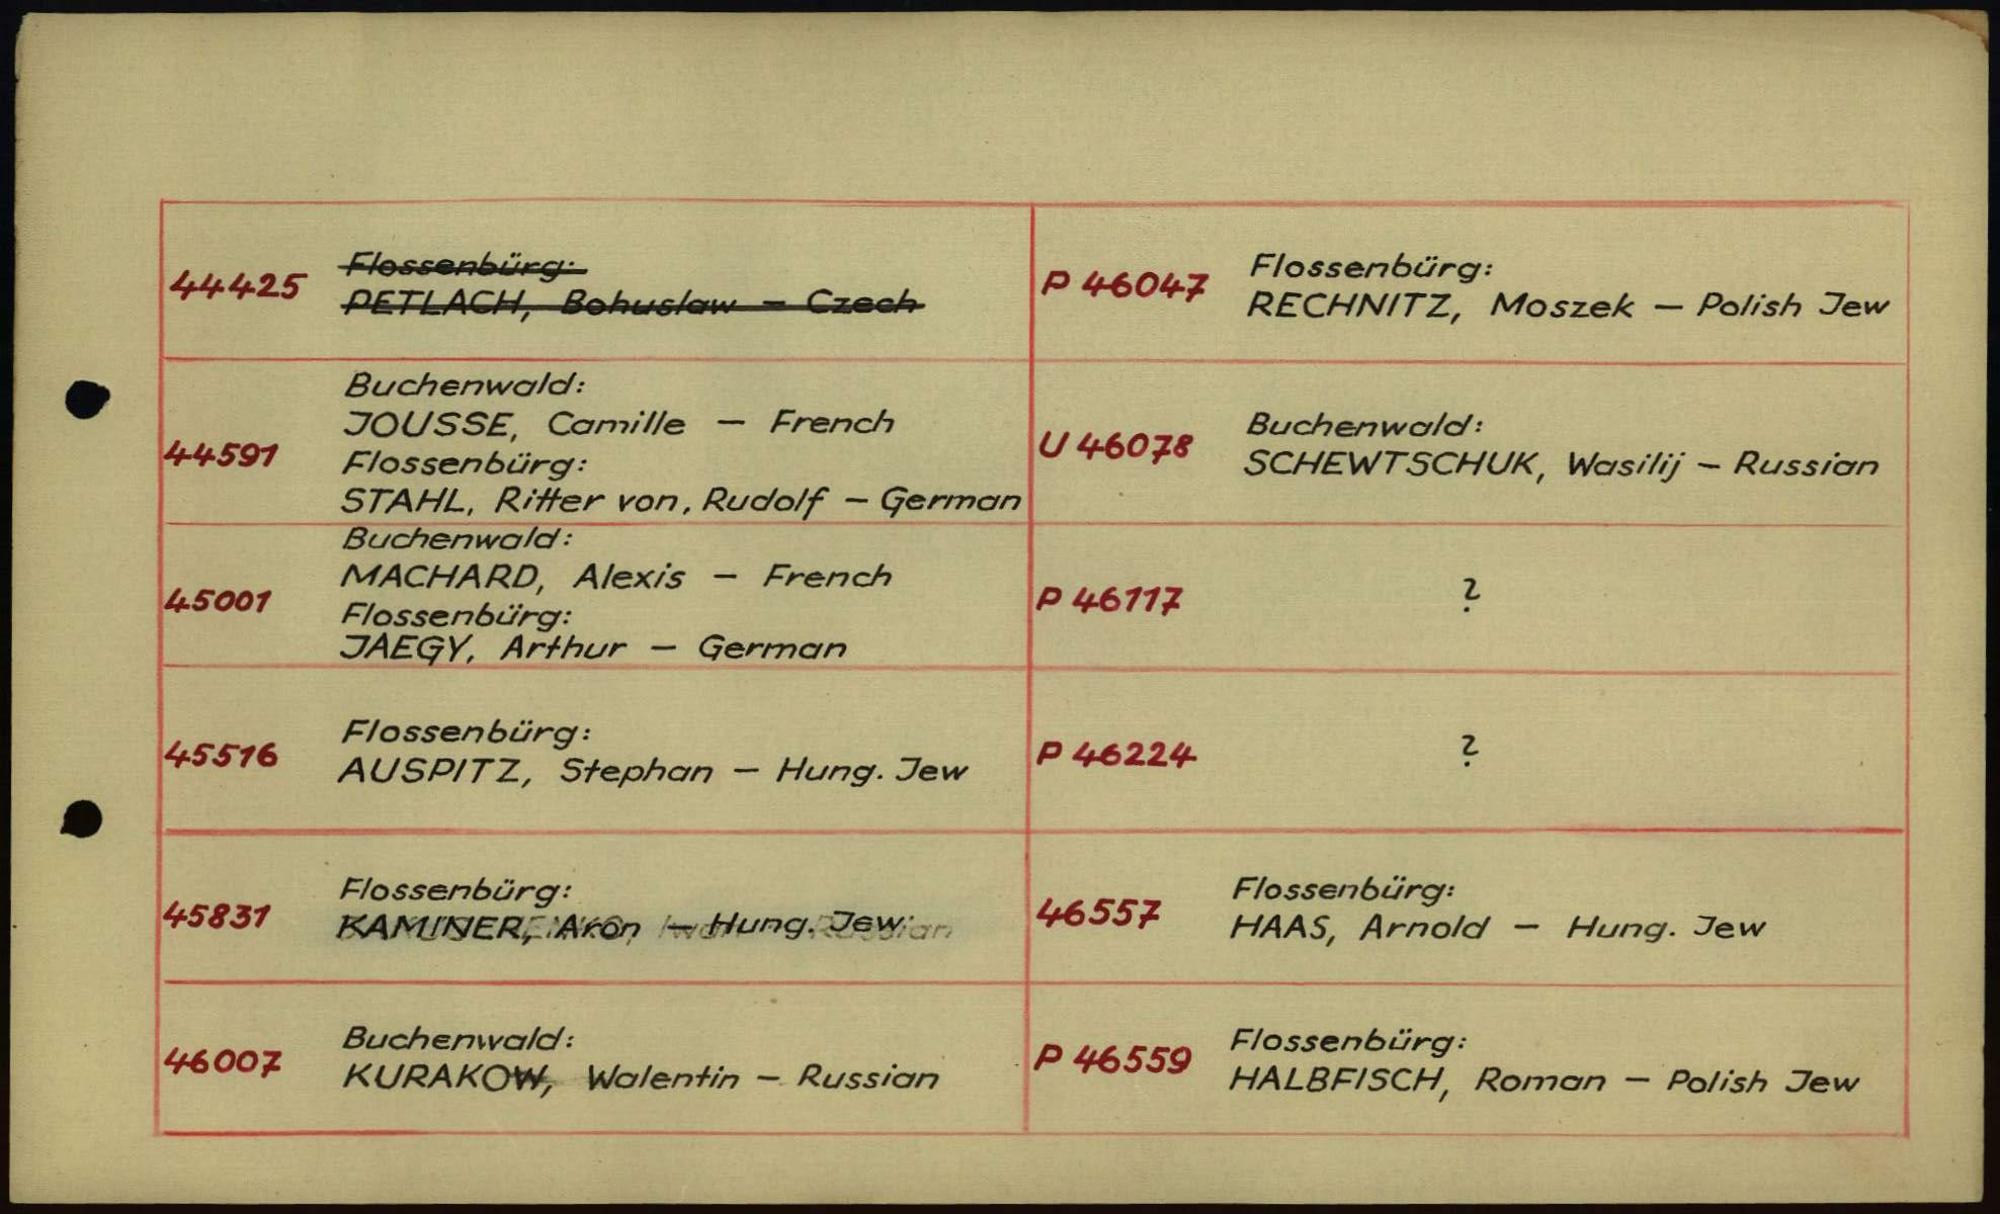 44425
Flossenbürg:
PETLACH, Bohuslaw – Czech
44591
Buchenwald:
JOUSSE, Camille – French
Flossenbürg:
STAHL, Ritter von, Rudolf – German
45001
Buchenwald:
MACHARD, Alexis – French
Flossenbürg:
JAEGY, Arthur – German
45516
Flossenbürg:
AUSPITZ, Stephan – Hung. Jew
45831
Flossenbürg:
KAMINER, Aron – Hung. Jew
46007
Buchenwald:
KURAKOW, Walentin – Russian
P 46047
Flossenbürg:
RECHNITZ, Moszek – Polish Jew
U 46078
Buchenwald:
SCHEWTSCHUK, Wasilij – Russian
P 46117
?
P 46224
?
46557
Flossenbürg:
HAAS, Arnold – Hung. Jew
P 46559
Flossenbürg:
HALBFISCH, Roman – Polish Jew